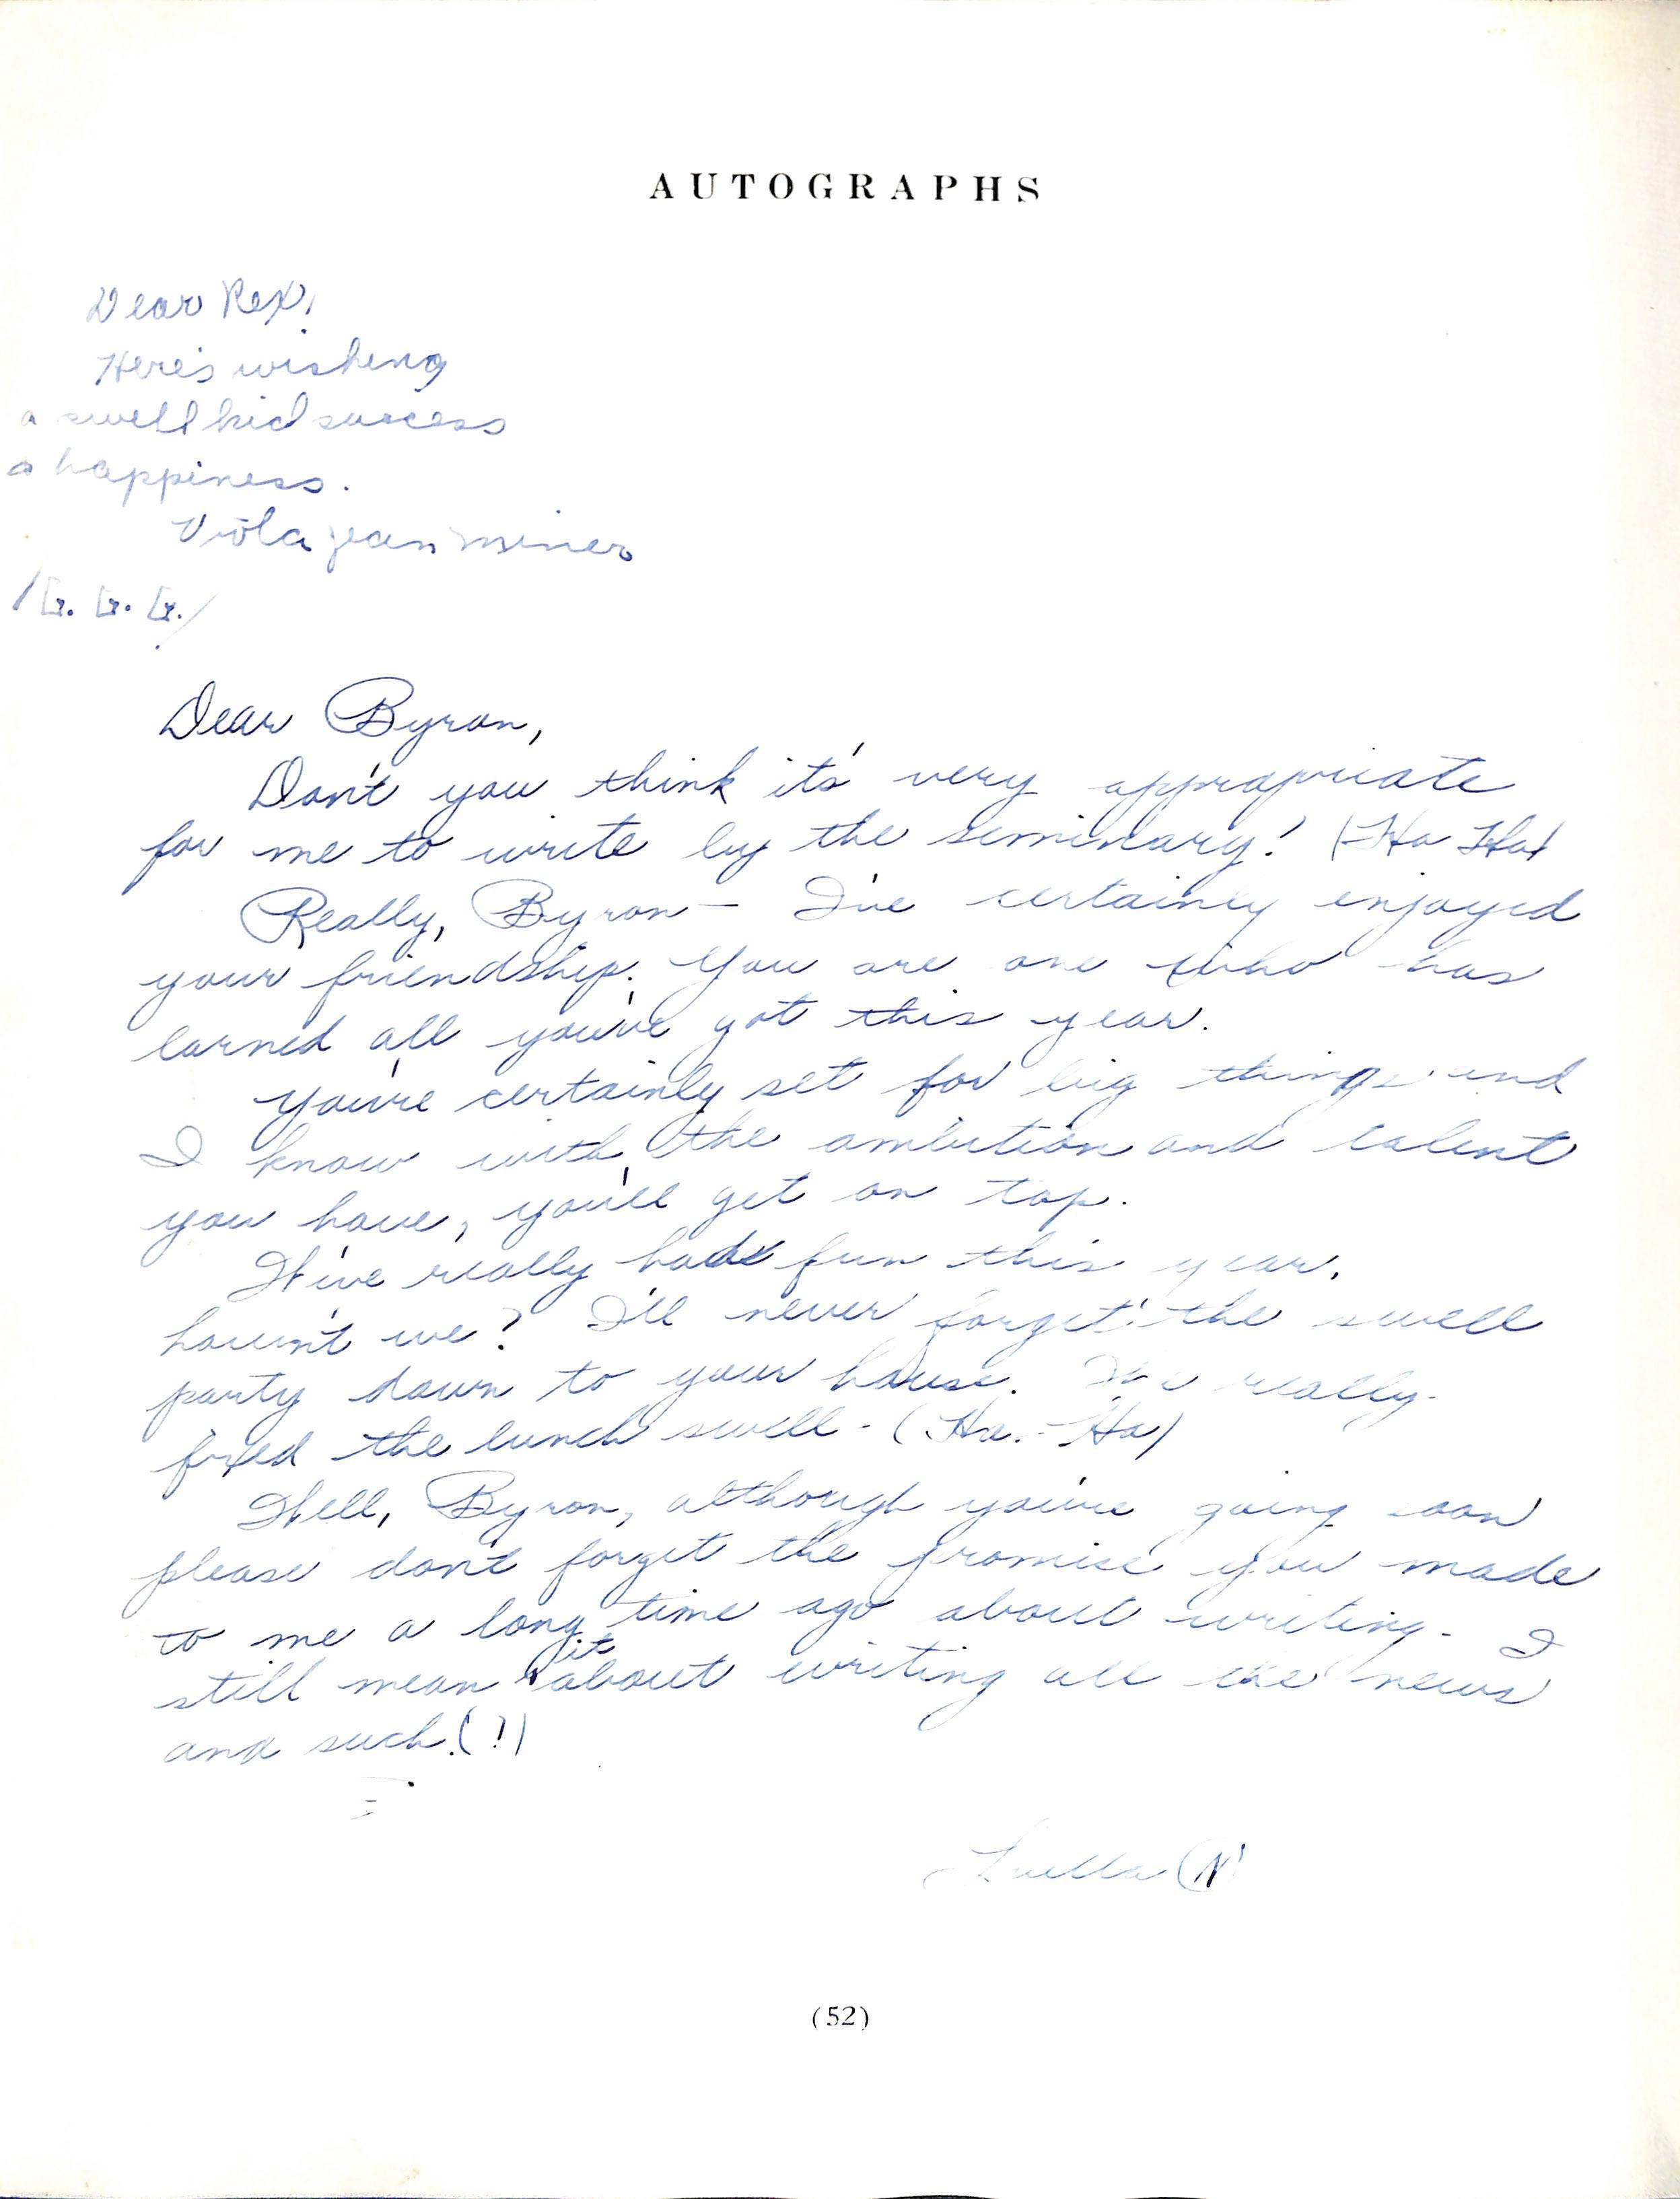 AUTOGRAPHS
Dear Rex,
Here's wishing
a swell kid success
a happiness.
Viola Jean Miner
Dear Byron,
Don't you think it's very appropriate
for me to write by the seminary! (Ha Ha)
Really, Byron — I've certainly enjoyed
your friendship. You are one who has
earned all you've got this year.
You're certainly set for big things and
I know with the ambition and talent
you have, you'll get on top.
We've really had fun this year,
haven't we? I'll never forget the swell
party down to your house. We really
fixed the lunch swell - (Ha. - Ha)
Well, Byron, although you're going soon
please don't forget the promise you made
to me a long time ago about writing. I
still mean it about writing all the news
and such. (!)
Luella (N)
(52)